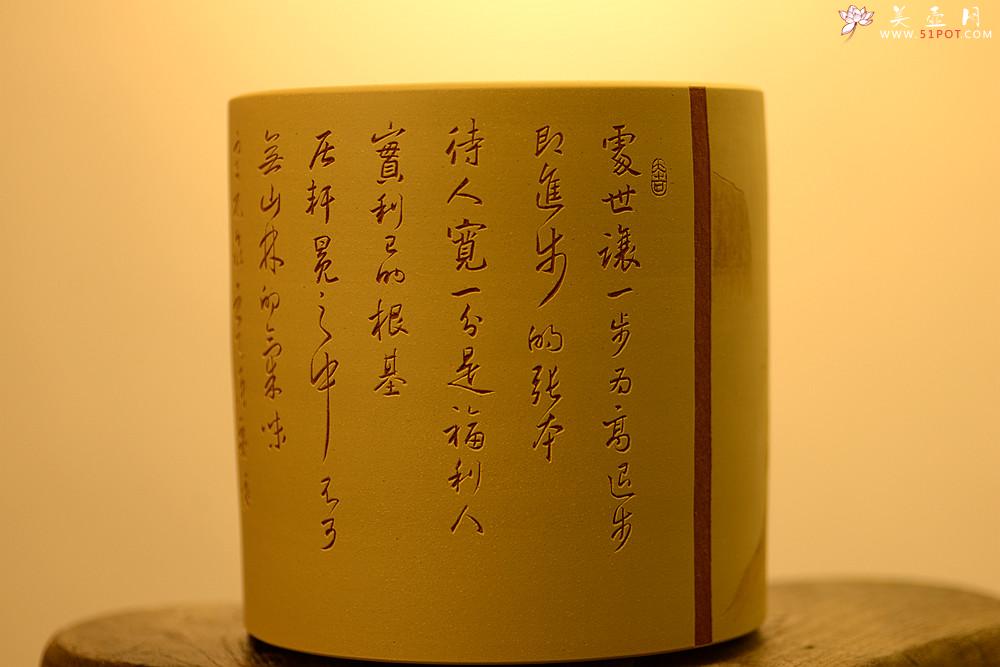 處世讓一步为高退步
即進步的張本
待人寬一分是福利人
實利己的根基
居軒冕之中不可
無山林的氣味
美壶月
WWW.51POT.COM